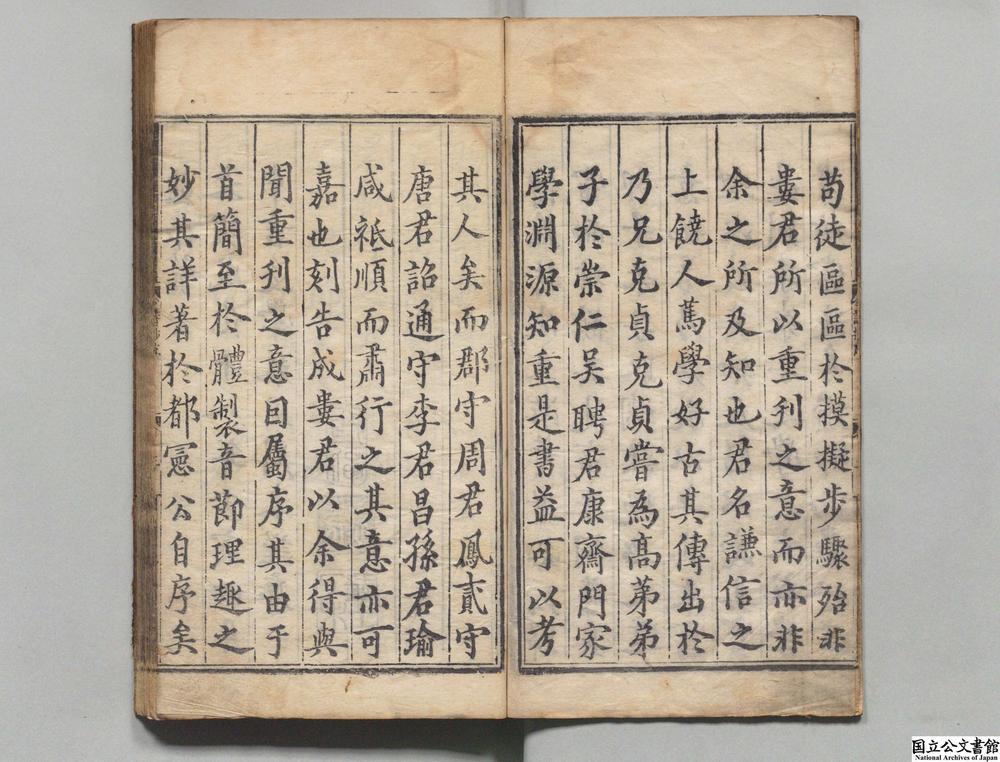 苟徒區區於摸擬步驟殆非
婁君所以重刊之意而亦非
余之所及知也君名謙信之
上饒人篤學好古其傳出於
乃兄克貞克貞嘗為高弟弟
子於崇仁吴聘君康齋門家
學淵源知重是書益可以考
其人矣而郡守周君鳳貳守
唐君詔通守李君昌孫君瑜
咸祗順而肅行之其意亦可
嘉也刻告成婁君以余得與
聞重刊之意囙屬序其由于
首簡至於體製音節理趣之
妙其詳著於都憲公自序矣
国立公文書館
National Archives of Japan